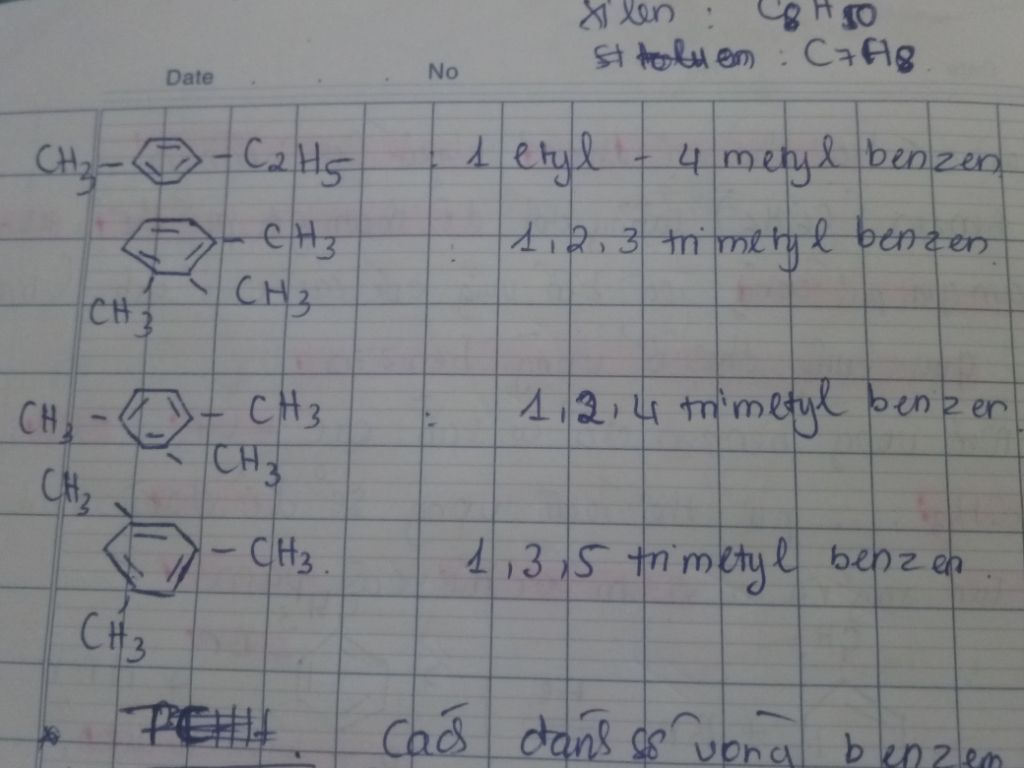 xilen : C8H10
toluen : C7H8
Date . . . No
CH3 – – C2H5 : 1 etyl – 4 metyl benzen
– CH3 : 1,2,3 trimetyl benzen.
CH3 CH3
CH3 – – CH3 : 1,2,4 trimetyl benzen
CH3
CH3
– CH3. 1,3,5 trimetyl benzen.
CH3
* benzen